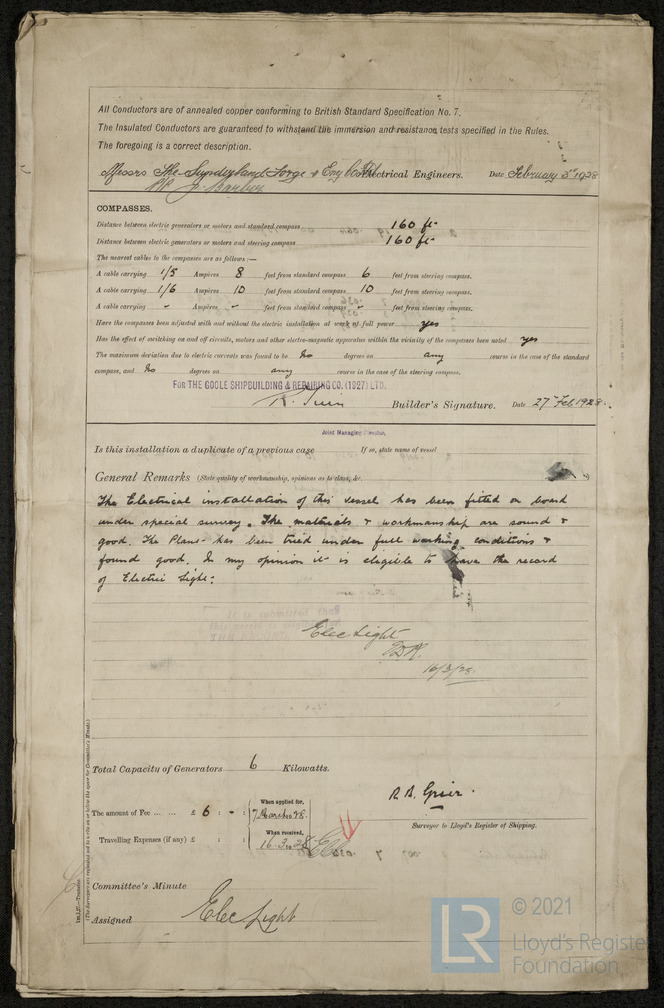 All Conductors are of annealed copper conforming to British Standard Specification No. 7.
The Insulated Conductors are guaranteed to withstand the immersion and resistance tests specified in the Rules.
The foregoing is a correct description.
Messrs The Sunderland Forge & Eng Co Ltd Electrical Engineers. Date February 3rd 1928
COMPASSES.
Distance between electric generators or motors and standard compass 160 ft
Distance between electric generators or motors and steering compass 160 ft
The nearest cables to the compasses are as follows:—
A cable carrying 1/5 Ampères 8 feet from standard compass 6 feet from steering compass.
A cable carrying 1/6 Ampères 10 feet from standard compass 10 feet from steering compass.
A cable carrying - Ampères - feet from standard compass - feet from steering compass.
Have the compasses been adjusted with and without the electric installation at work at full power yes
Has the effect of switching on and off circuits, motors and other electro-magnetic apparatus within the vicinity of the compasses been noted yes
The maximum deviation due to electric currents was found to be No degrees on any course in the case of the standard
compass, and No degrees on any course in the case of the steering compass.
FOR THE GOOLE SHIPBUILDING & REPAIRING CO. (1927) LTD.
Builder's Signature. Date 27th Feb. 1928.
Joint Managing Director.
Is this installation a duplicate of a previous case If so, state name of vessel
General Remarks (State quality of workmanship, opinions as to class, &c.
The Electrical installation of this vessel has been fitted on board
under special survey. The materials & workmanship are sound &
good. The Plant has been tried under full working conditions &
found good. In my opinion it is eligible to have the record
of Electric Light.
Elec Light
16/3/28.
Total Capacity of Generators 6 Kilowatts.
The amount of Fee ... ... £ 6 : - : When applied for, 7 March 1928.
Travelling Expenses (if any) £ : : When received, 16.3.1928
Surveyor to Lloyd's Register of Shipping.
Committee's Minute
Assigned Elec Light
(The Surveyors are requested not to write on or below the space for Committee's Minute.)
LR
© 2021
Lloyd's Register
Foundation